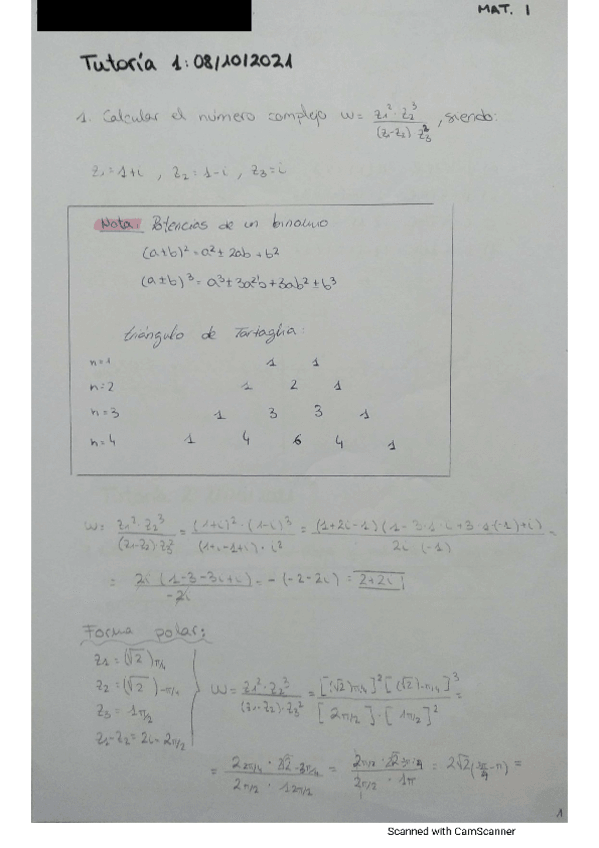 MAT. I
Tutoría 1: 08/10/2021
1. Calcular el número complejo w = z₁² · z₂³ / (z₁-z₂) z₃², siendo:
z₁ = 1+i , z₂ = 1-i , z₃ = i
Nota: Potencias de un binomio
(a±b)² = a² ± 2ab + b²
(a±b)³ = a³ ± 3a²b + 3ab² ± b³
triángulo de Tartaglia:
n=1 1 1
n=2 1 2 1
n=3 1 3 3 1
n=4 1 4 6 4 1
w = z₁² · z₂³ / (z₁-z₂) · z₃² = (1+i)² · (1-i)³ / (1+i-1+i) · i² = (1+2i-1)(1-3·1·i+3·1(-1)+i) / 2i (-1) =
= 2i (1-3-3i+i) / -2i = -(-2-2i) = 2+2i
Forma polar:
z₁ = (√2)π/4
z₂ = (√2)-π/4
z₃ = 1π/2
z₁-z₂ = 2i = 2π/2
w = z₁² · z₂³ / (z₁-z₂) · z₃² = [(√2)π/4]² [(√2)-π/4]³ / [2π/2] · [1π/2]² =
1
Scanned with CamScanner